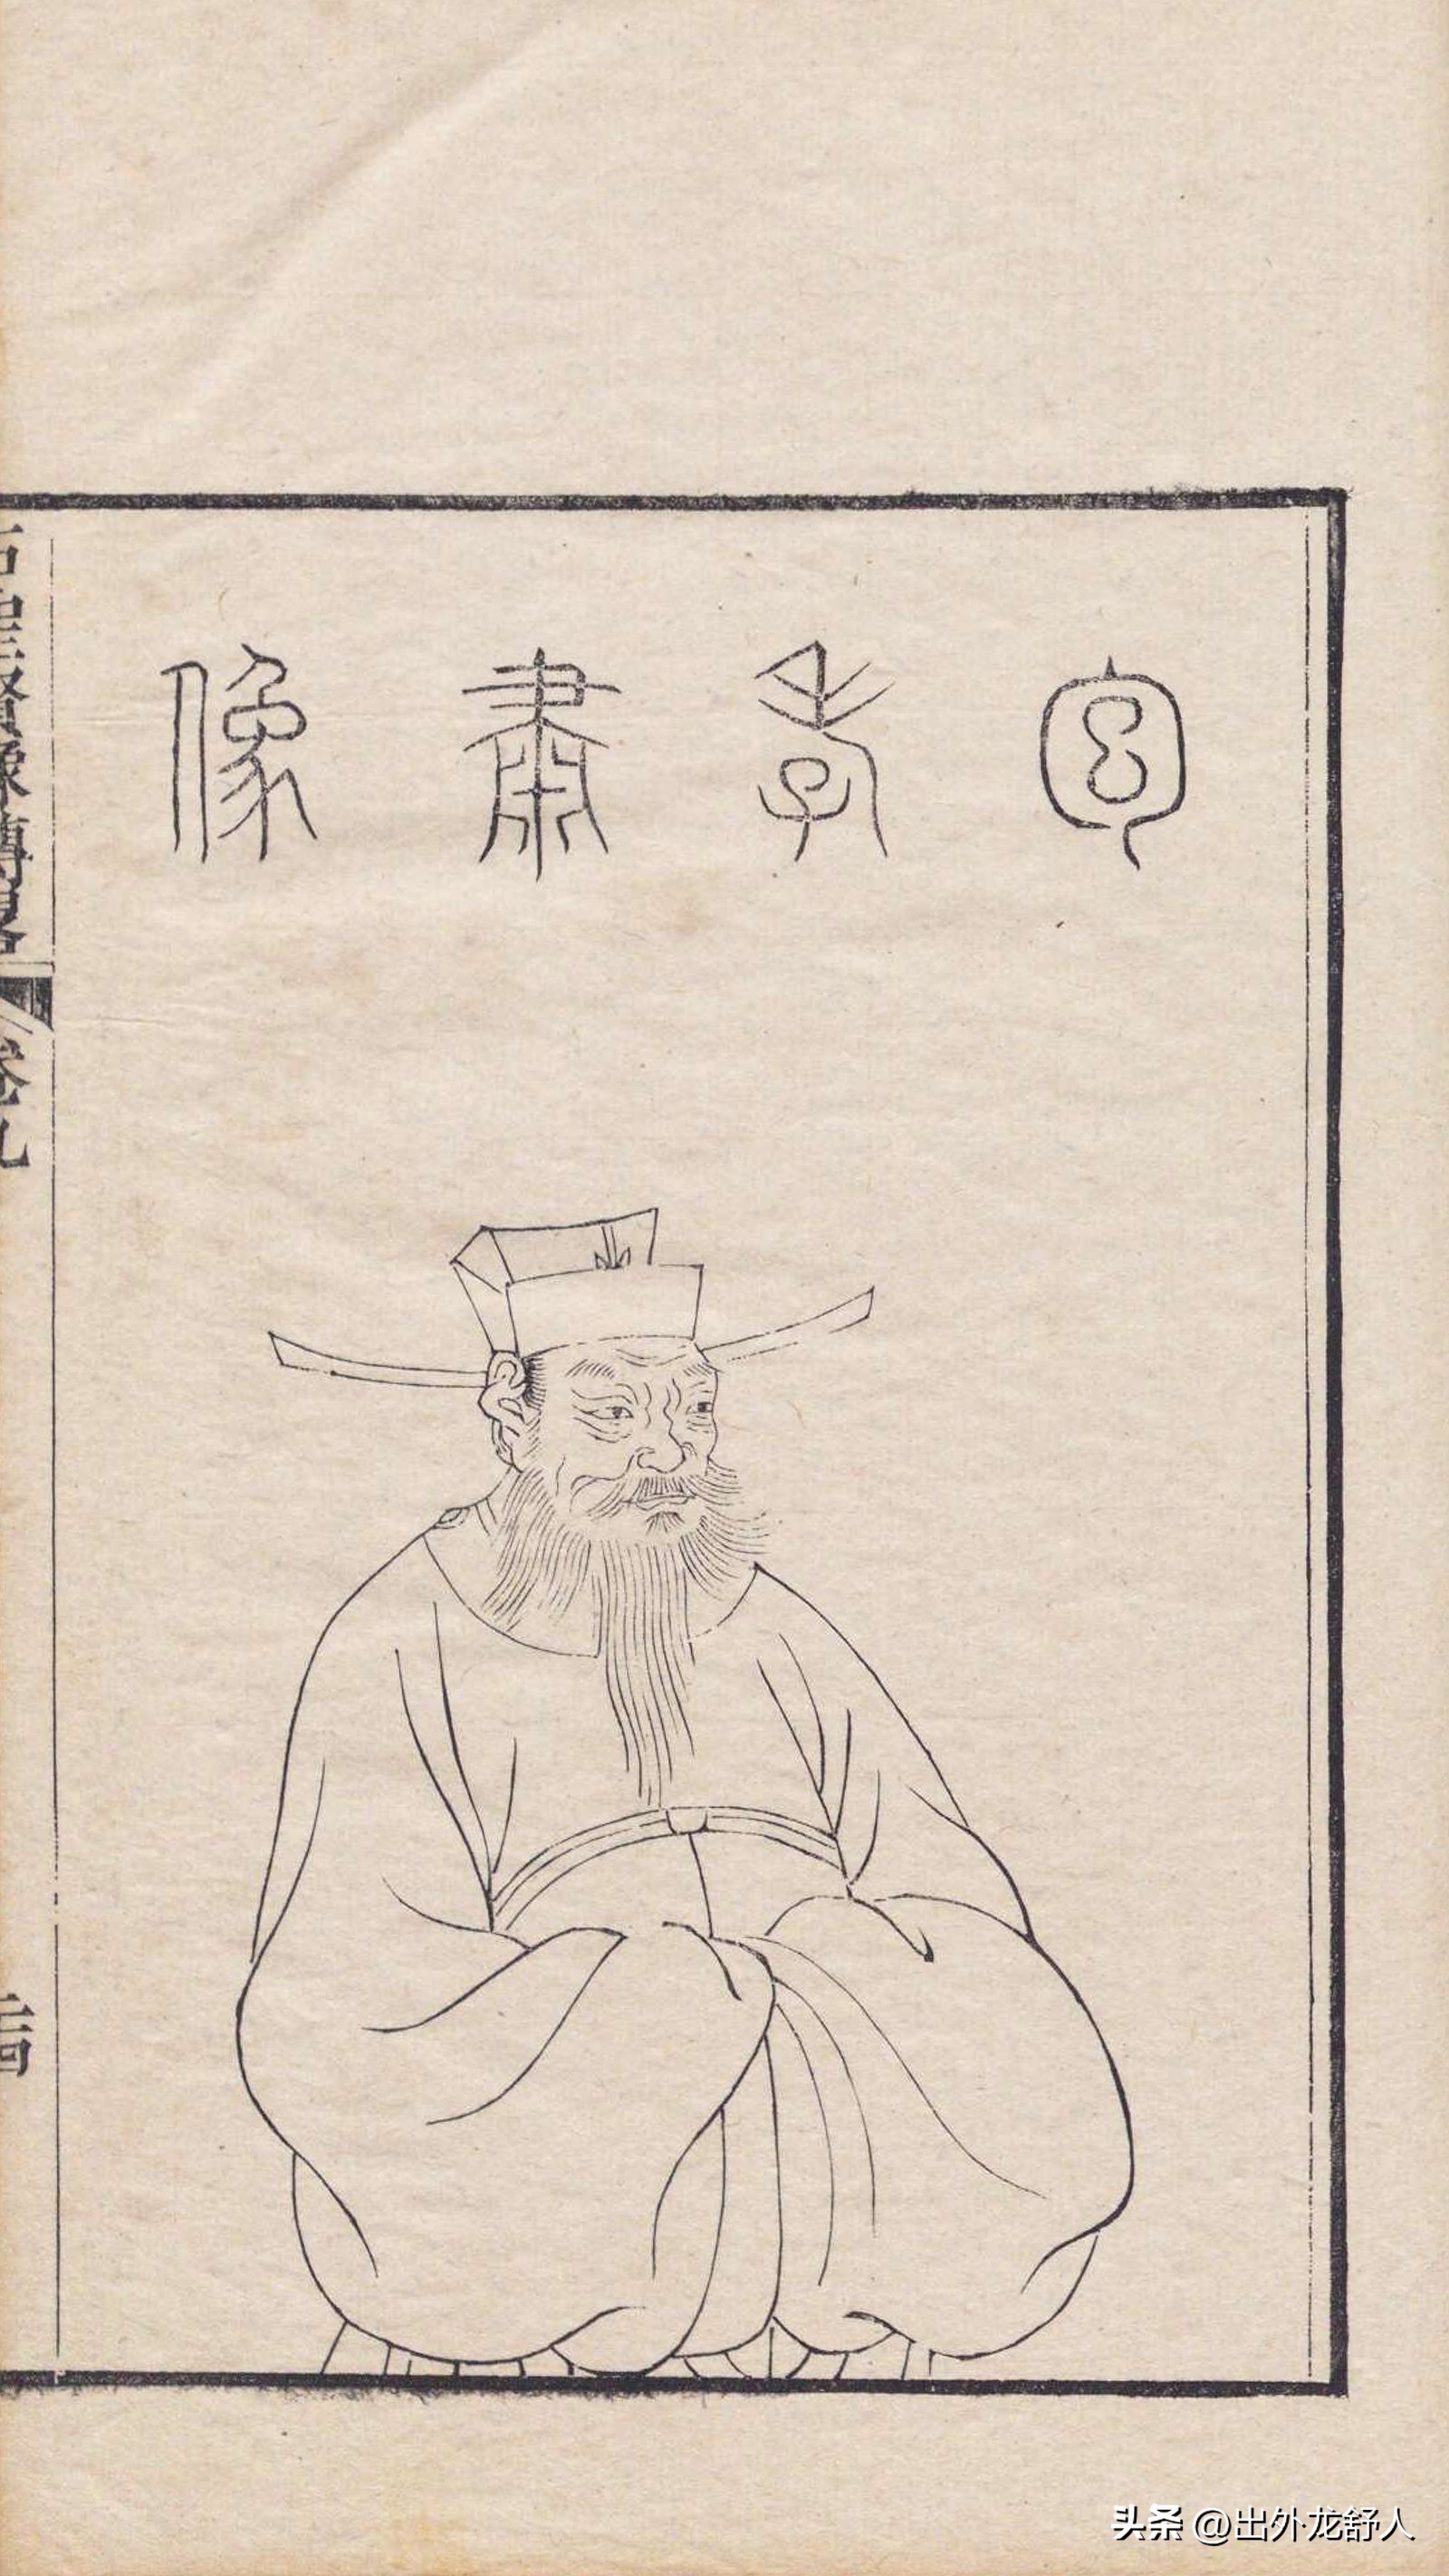 包孝肅像
古聖賢像傳略
卷九
头条 @出外龙舒人